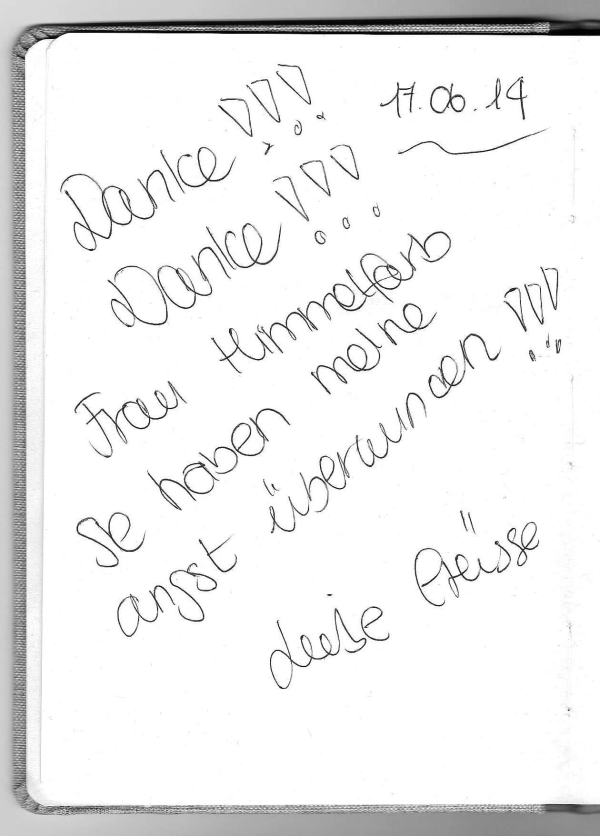 17.06.14
Danke!!!
Danke!!!
Frau Himmelfarb
Sie haben meine
angst überwunden!!!
Liebe Grüsse